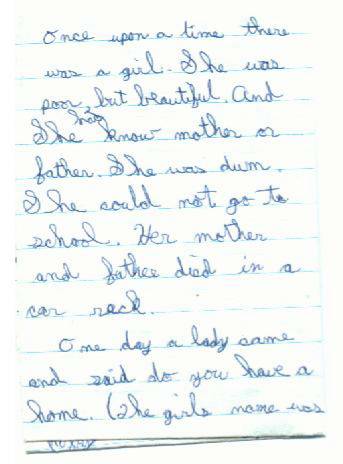 Once upon a time there
was a girl. She was
poor, but beautiful. And
She has know mother or
father. She was dum.
She could not go to
school. Her mother
and father died in a
car rack.
One day a lady came
and said do you have a
home. (The girls name was